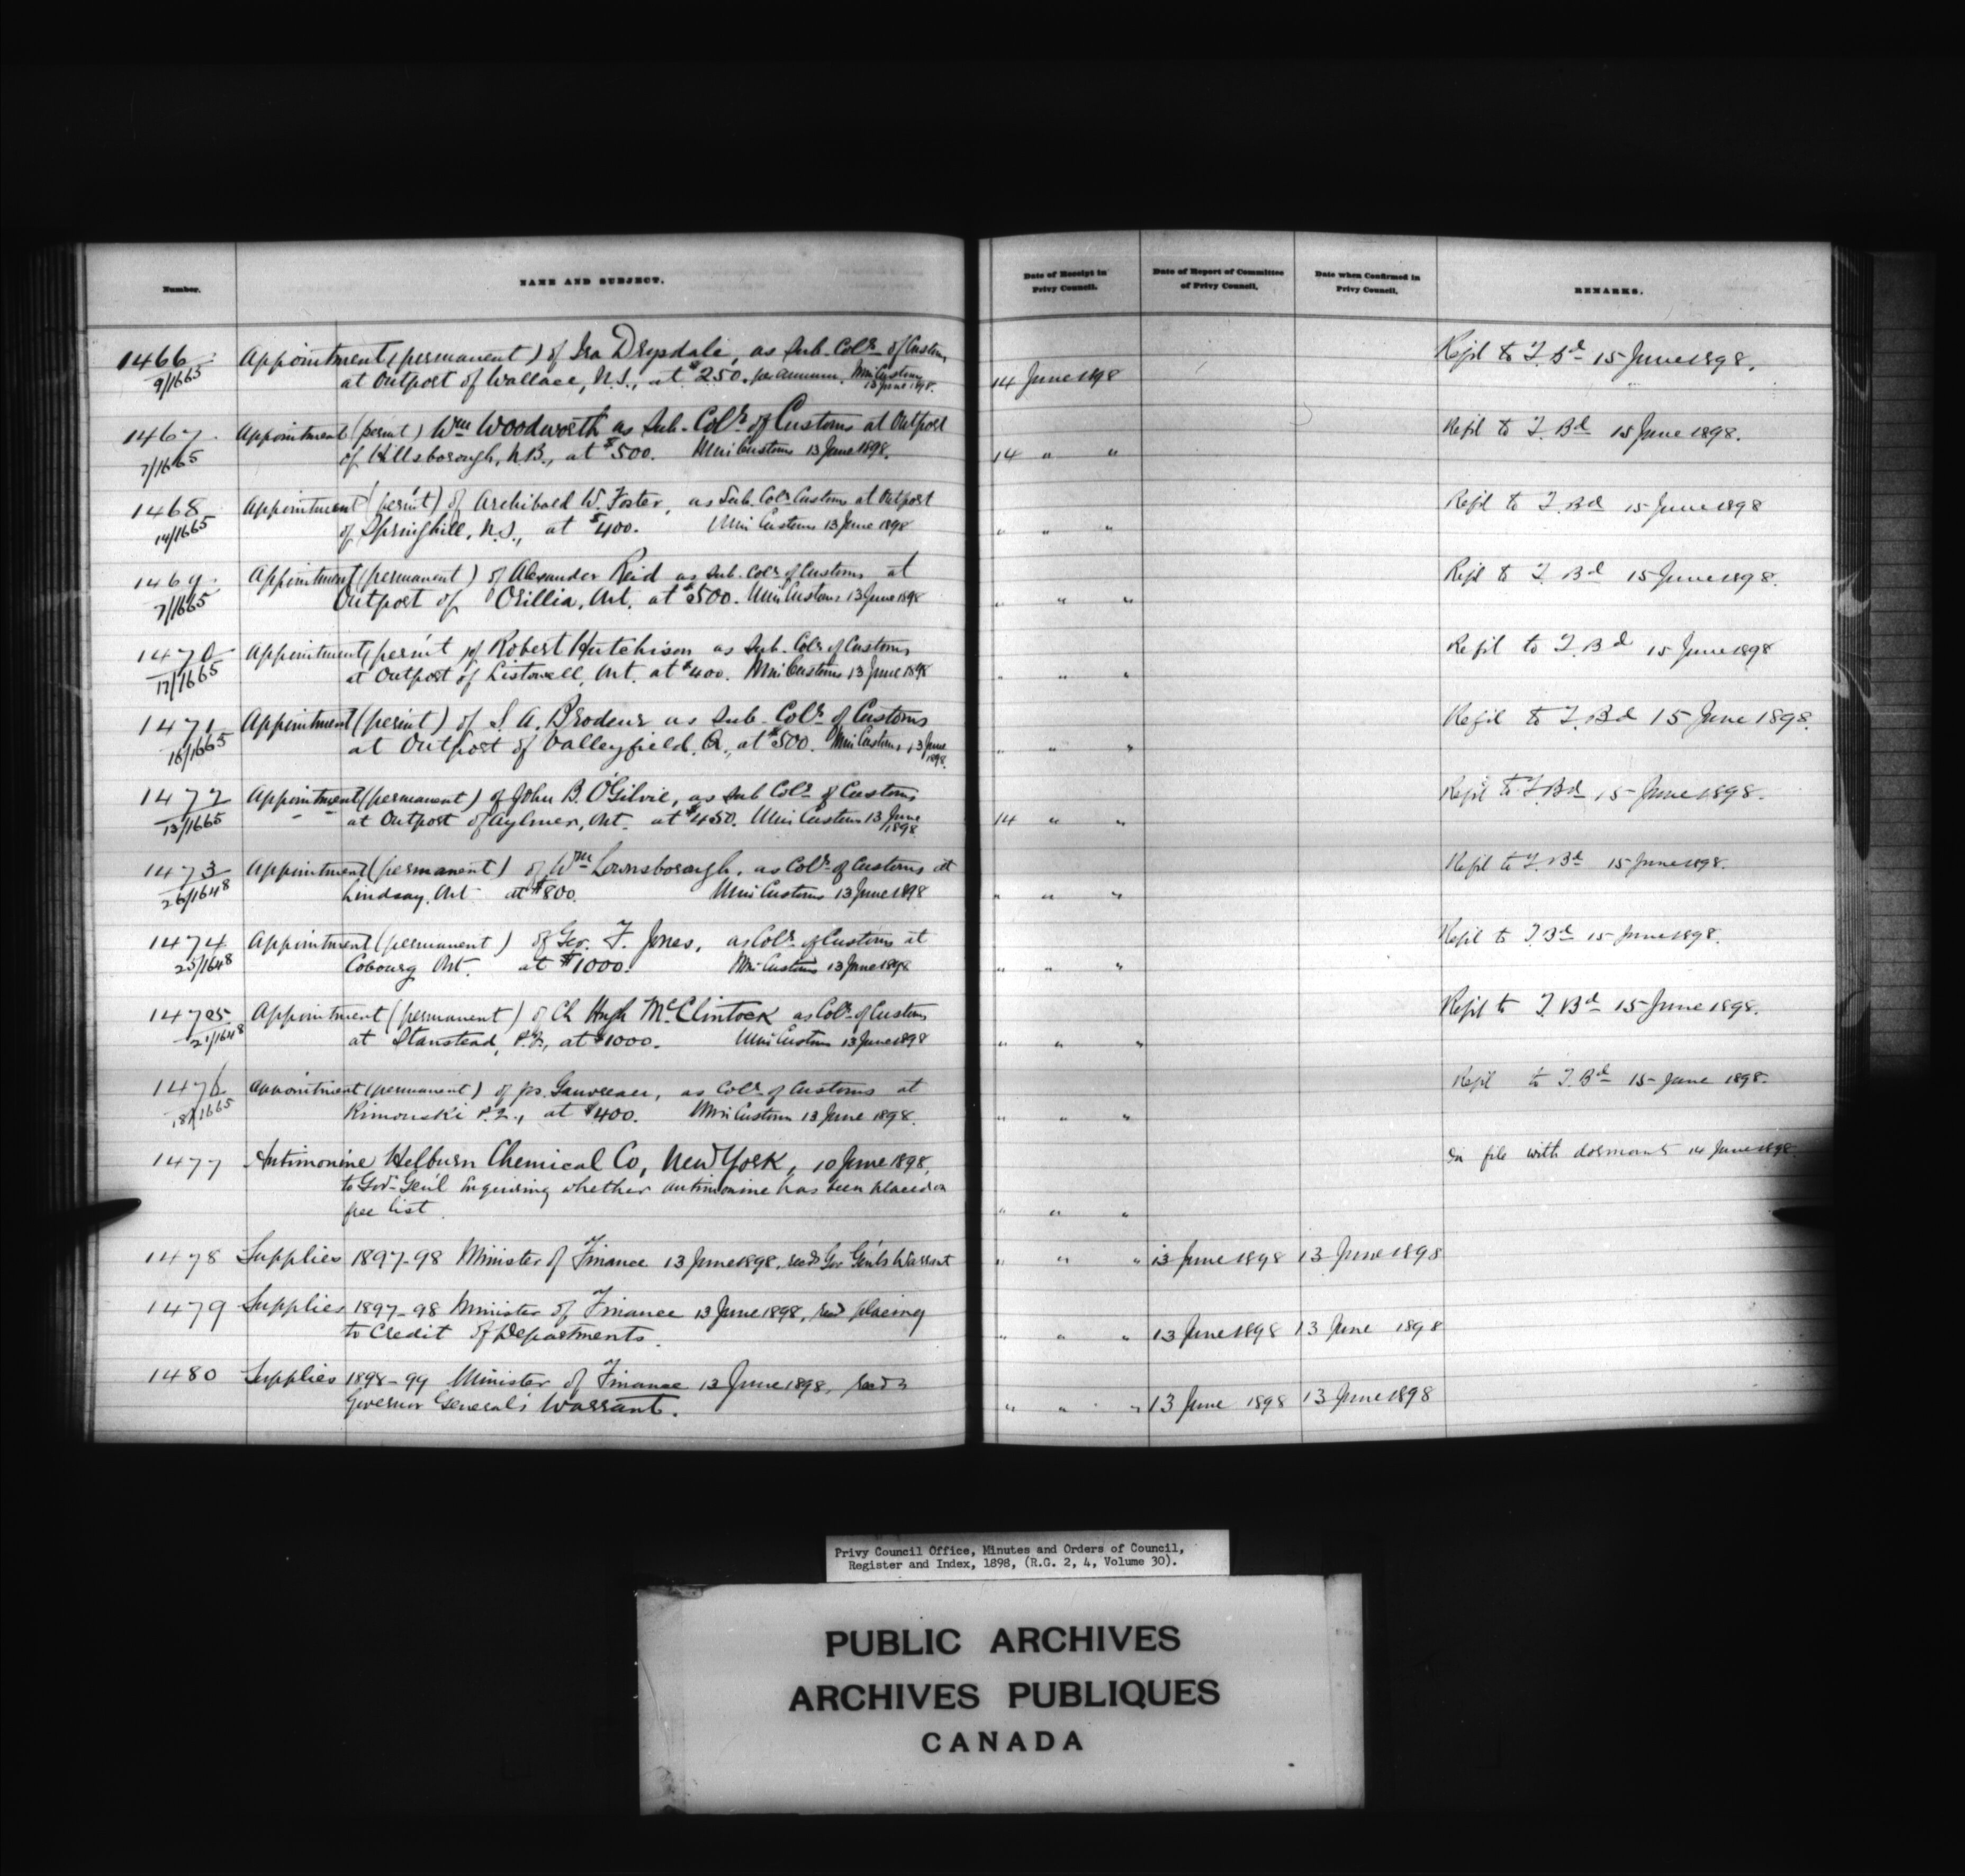 Number.
NAME AND SUBJECT.
Date of Receipt in
Privy Council.
Date of Report of Committee
of Privy Council.
Date when Confirmed in
Privy Council.
REMARKS.
1466 Appointment (permanent) of Ira Drysdale, as Sub-Colr of Customs
9/1665 at Outpost of Wallace, N.S., at $250. per annum. Min Customs 13 June 1898.
14 June 1898
Refd to T. Bd 15 June 1898.
1467. Appointment (permt) Wm Woodworth as Sub-Colr of Customs at Outpost
7/1665 of Hillsborough, N.B., at $500. Min Customs 13 June 1898.
14 " "
Refd to T. Bd 15 June 1898.
1468 Appointment (perm't) of Archibald W. Foster, as Sub. Colr Customs at Outpost
14/1665 of Springhill, N.S., at $400. Min Customs 13 June 1898
" " "
Refd to T. Bd 15 June 1898
1469. Appointment (permanent) of Alexander Reid as Sub-Colr of Customs at
7/1665 Outpost of Orillia, Ont. at $500. Min Customs 13 June 1898
" " "
Refd to T. Bd 15 June 1898.
1470 Appointment, perm't of Robert Hutchison as Sub-Colr of Customs
17/1665 at Outpost of Listowell, Ont. at $400. Min Customs 13 June 1898
" " "
Refd to T. Bd 15 June 1898
1471 Appointment (permt) of S. A. Brodeur as Sub-Colr of Customs
16/1665 at Outpost of Valleyfield, Q., at $500. Min Customs 13 June 1898.
" " "
Refd to T. Bd 15 June 1898.
1472 Appointment (permanent) of John B. O'Gilvie, as Sub Colr of Customs
13/1665 at Outpost of Aylmer, Ont. at $450. Min Customs 13 June 1898
14 " "
Refd to T. Bd 15 June 1898.
1473 Appointment (permanent) of Wm Lownsborough, as Colr of Customs at
26/1648 Lindsay, Ont at $800. Min Customs 13 June 1898
" " "
Refd to T. Bd 15 June 1898.
1474 Appointment (permanent) of Geo. F. Jones, as Colr of Customs at
25/1648 Cobourg Ont. at $1000. Min Customs 13 June 1898
" " "
Refd to T. Bd 15 June 1898.
1475 Appointment (permanent) of Ch Hugh McClintock as Colr of Customs
21/1648 at Stanstead, P.Q., at $1000. Min Customs 13 June 1898
" " "
Refd to T. Bd 15 June 1898.
1476 Appointment (permanent) of Jos. Gauvreau, as Colr of Customs at
18/1665 Rimouski P.Q., at $400. Min Customs 13 June 1898.
" " "
Refd to T. Bd 15 June 1898.
1477 Antimonine Helburn Chemical Co, New York, 10 June 1898,
to Gov-Gen'l Enquiring whether antimonine has been placed on
free list.
" " "
on file with dormants 14 June 1898.
1478 Supplies 1897-98 Minister of Finance 13 June 1898, Gov Gen'ls Warrant
" " " 13 June 1898 13 June 1898
1479 Supplies 1897-98 Minister of Finance 13 June 1898, placing
to Credit of Departments.
" " " 13 June 1898 13 June 1898
1480 Supplies 1898-99 Minister of Finance 13 June 1898,
Governor General's Warrant.
" " " 13 June 1898 13 June 1898
Privy Council Office, Minutes and Orders of Council,
Register and Index, 1898, (R.G. 2, 4, Volume 30).
PUBLIC ARCHIVES
ARCHIVES PUBLIQUES
CANADA